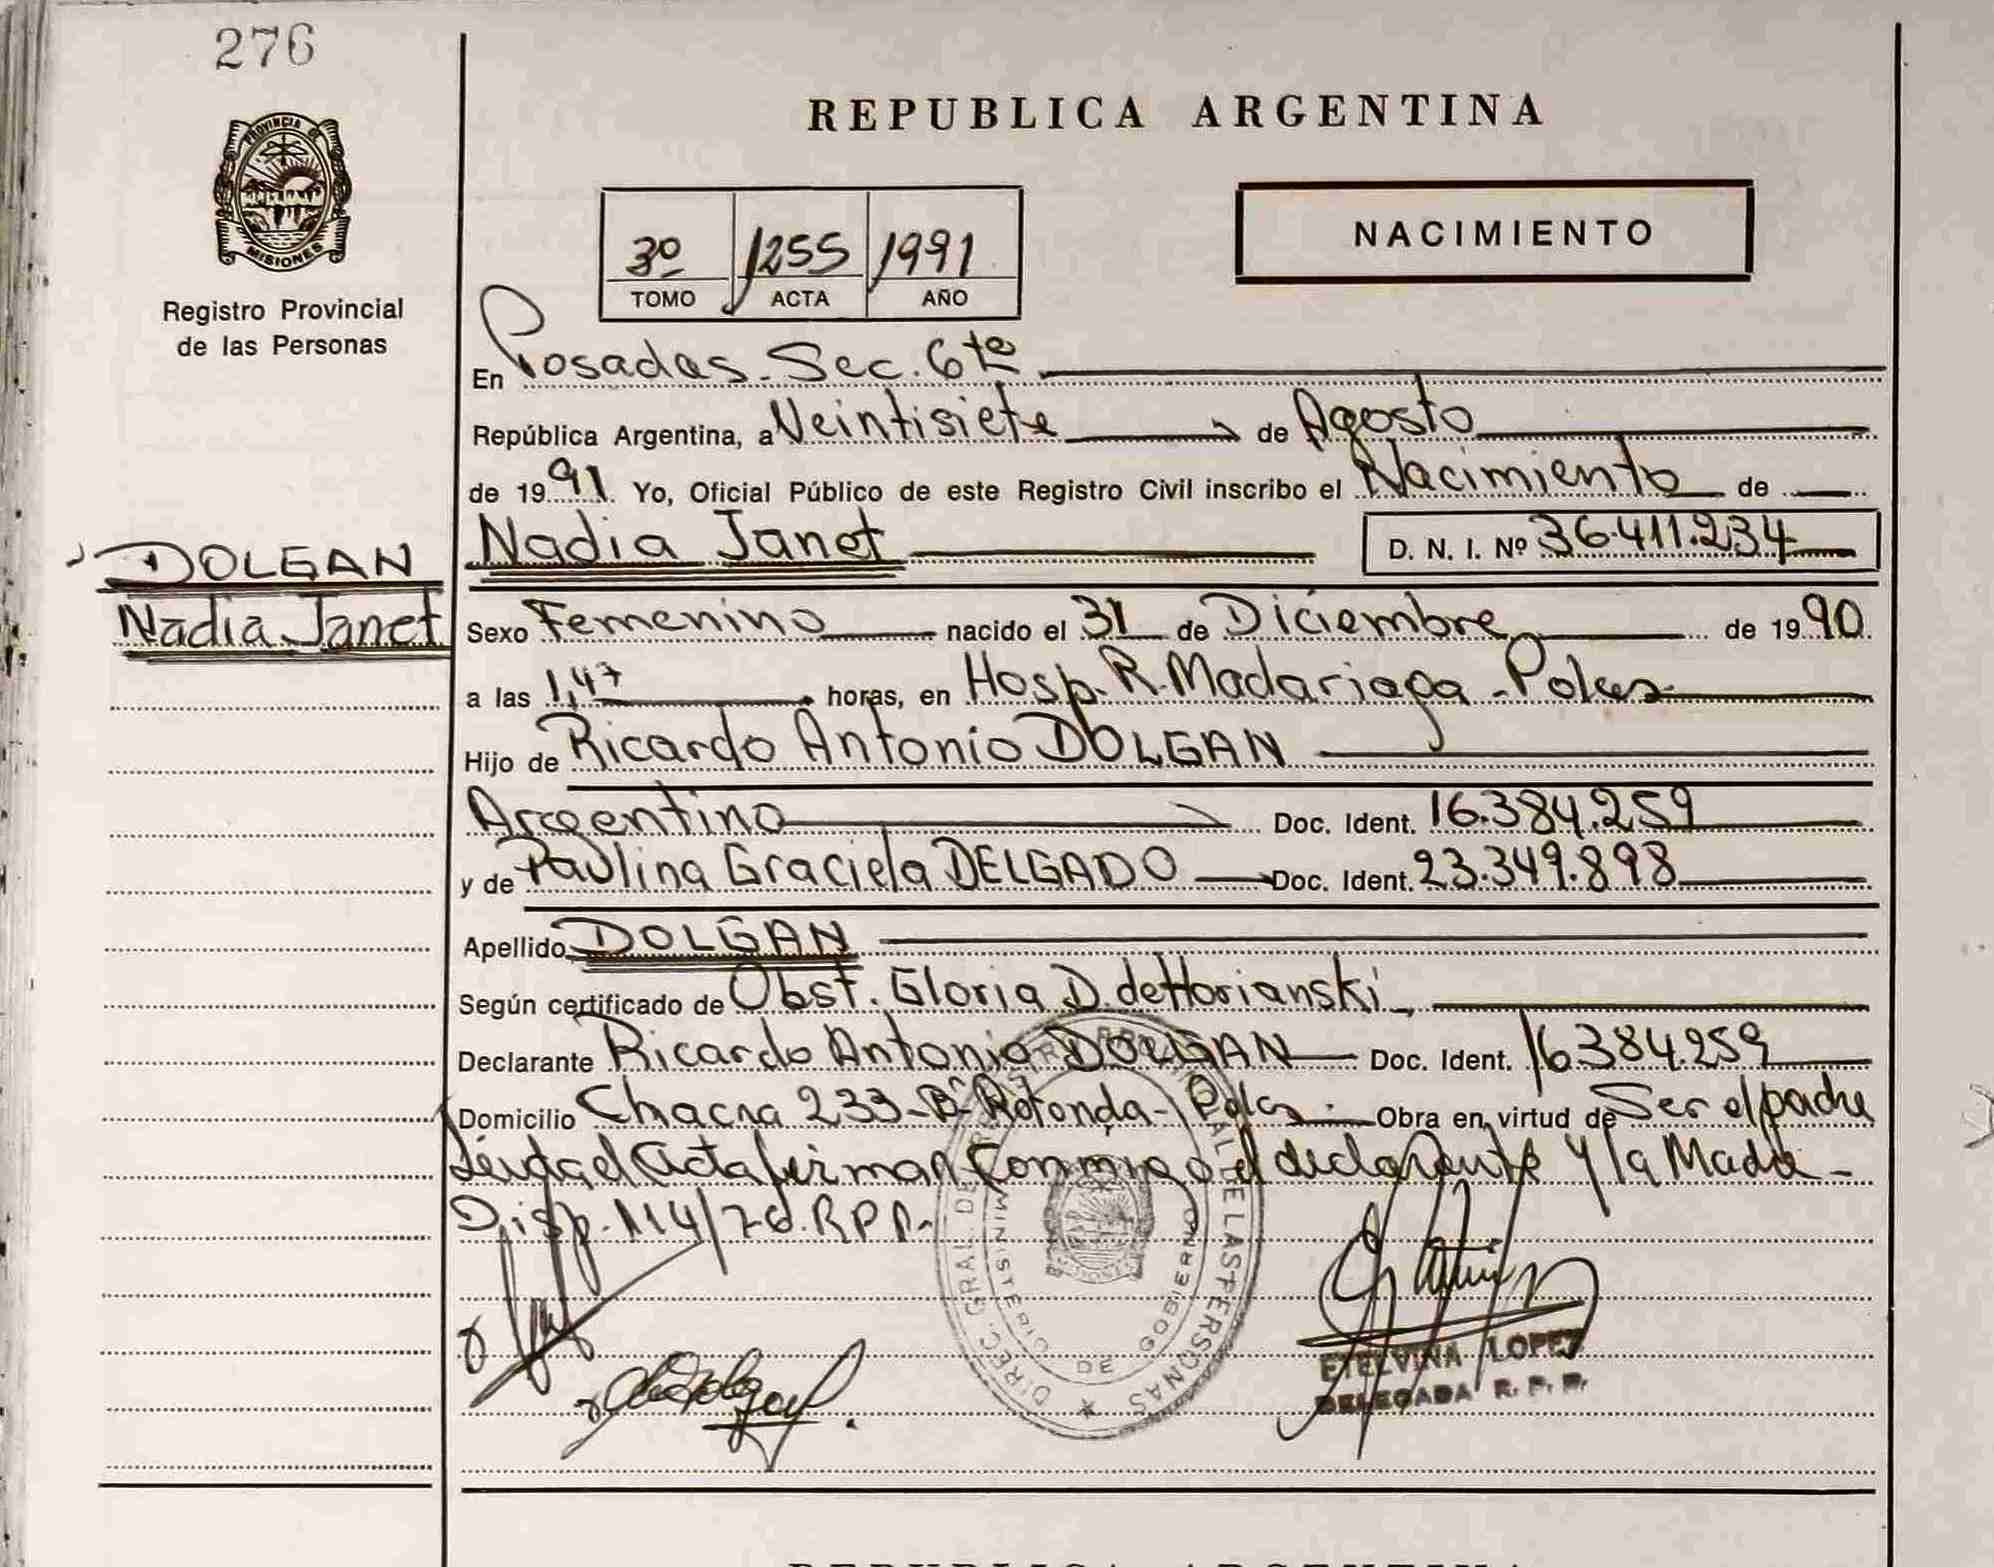 276
PROVINCIA DE
MISIONES
Registro Provincial
de las Personas
DOLGAN
Nadia Janet
REPUBLICA ARGENTINA
3º 1255 1991
TOMO ACTA AÑO
NACIMIENTO
En Posadas. Sec. 6ta
República Argentina, a Veintisiete de Agosto
de 1991 Yo, Oficial Público de este Registro Civil inscribo el Nacimiento de
Nadia Janet D. N. I. Nº 36.411.234
Sexo Femenino nacido el 31 de Diciembre de 1990
a las 1,47 horas, en Hosp. R. Madariaga - Pdas
Hijo de Ricardo Antonio DOLGAN
Argentino Doc. Ident. 16.384.259
y de Paulina Graciela DELGADO Doc. Ident. 23.349.898
Apellido DOLGAN
Según certificado de Obst. Gloria D. de Horianski
Declarante Ricardo Antonio DOLGAN Doc. Ident. 16384.259
Domicilio Chacra 233 - Bº Rotonda - Pdas. Obra en virtud de Ser el padre
Leida el Acta firman Conmigo el declarante y la Madre -
Disp. 114/76. R.P.P.-
DIREC. GRAL. DE REGISTRO PROVINCIAL DE LAS PERSONAS
MINISTERIO DE GOBIERNO
ETELVINA LOPEZ
DELEGADA R. P. P.
REPUBLICA ARGENTINA